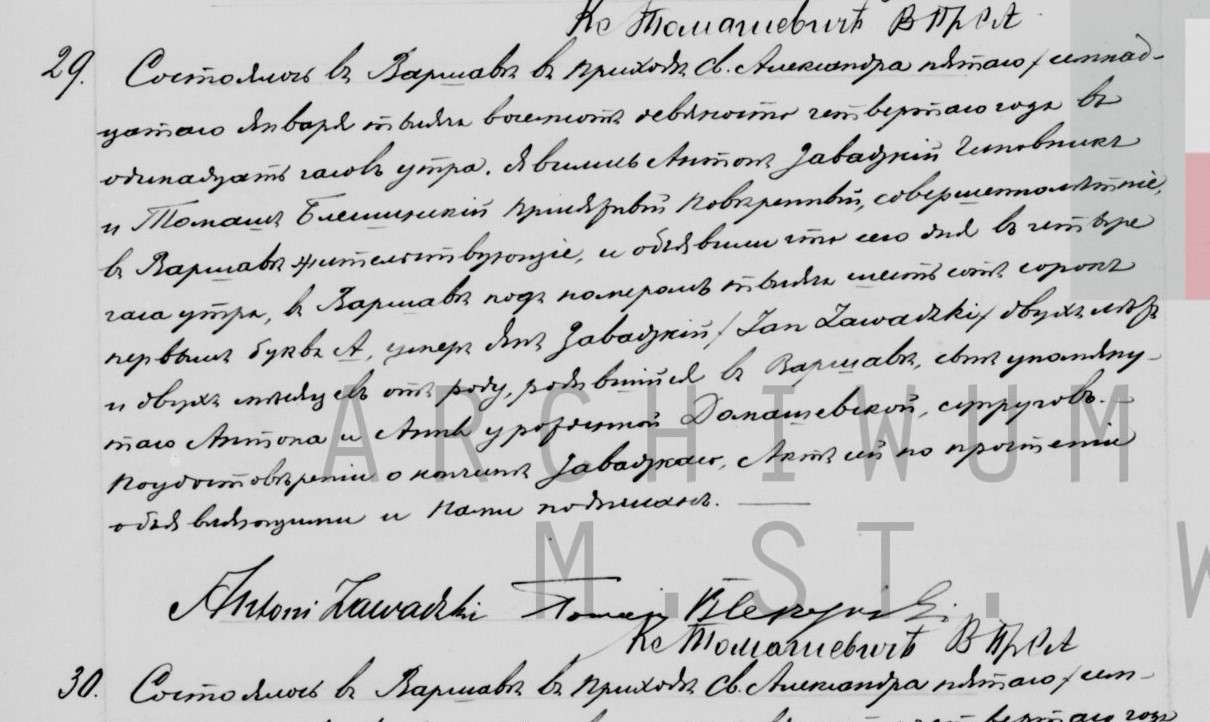 Кс Томашевичъ В П Р С А
29. Состоялось въ Варшавѣ въ приходѣ Св. Александра пятаго / семнад-
цатаго января тысяча восемьсотъ девяносто четвертаго года въ
одинадцать часовъ утра. Явились Антонъ Завадзкій Чиновникъ
и Томашъ Блешинскій присяжный повѣренный, совершеннолѣтніе,
въ Варшавѣ жительствующіе, и объявили что сего дня въ четыре
часа утра, въ Варшавѣ подъ номеромъ тысяча шестьсотъ сорокъ
первымъ буква А, умеръ Янъ Завадзкій / Jan Zawadzki / двухъ лѣтъ
и двухъ мѣсяцевъ отъ роду, родившійся въ Варшавѣ, сынъ упомяну-
таго Антона и Анны урожденной Домашевской, супруговъ.
По удостовѣреніи о кончинѣ Завадзкаго, Актъ сей по прочтеніи
объявляющими и Нами подписанъ.
ARCHIWUM
M. ST. W
Antoni Zawadzki Tomasz Bleszyński
Кс Томашевичъ В П Р С А
30. Состоялось въ Варшавѣ въ приходѣ Св. Александра пятаго / сем-
четвертаго года